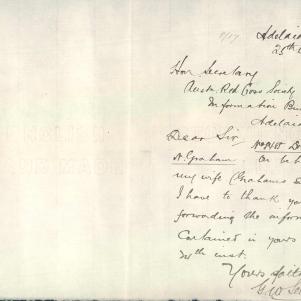 Adelaid
25th
Hon Secretary
Aust. Red Cross Society
Information Bu
Adelai
Dear Sir,
N. Graham. On beh
my wife (Grahams S
I have to thank you
forwarding the inform
Contained in yours
inst.
Yours faith